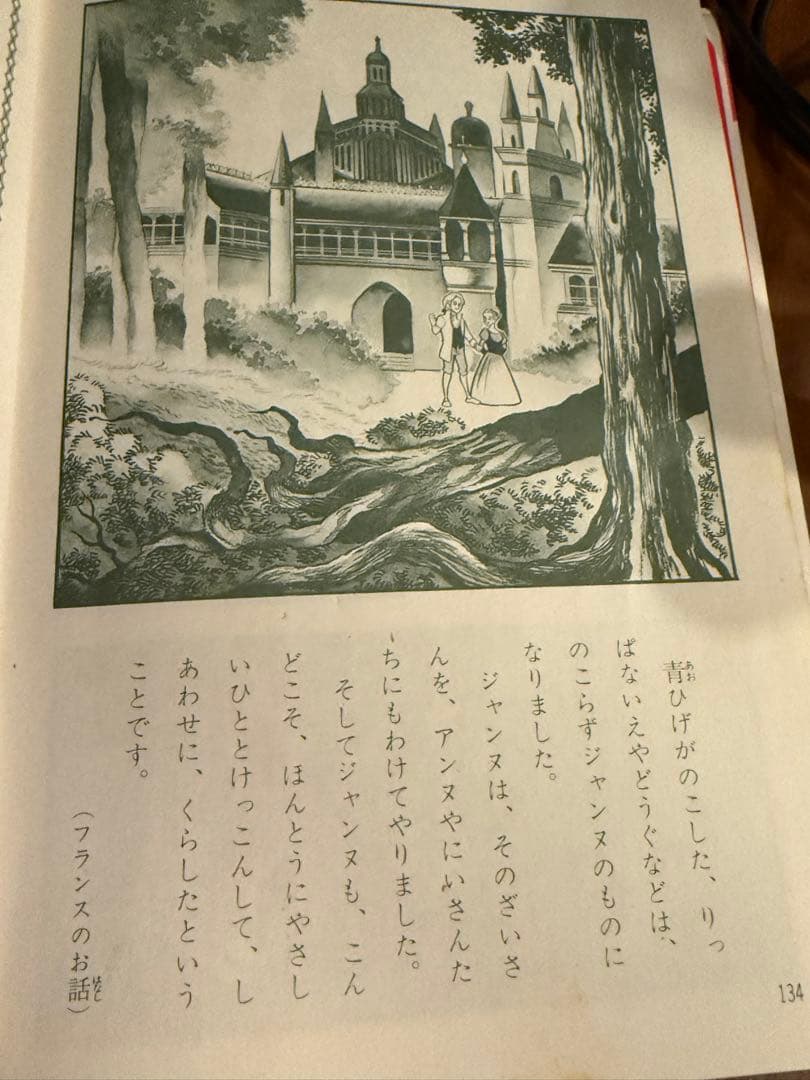 青ひげがのこした、りっ
ぱないえやどうぐなどは、
のこらずジャンヌのものに
なりました。
ジャンヌは、そのざいさ
んを、アンヌやにいさんた
ちにもわけてやりました。
そしてジャンヌも、こん
どこそ、ほんとうにやさし
いひととけっこんして、し
あわせに、くらしたという
ことです。
（フランスのお話）
134